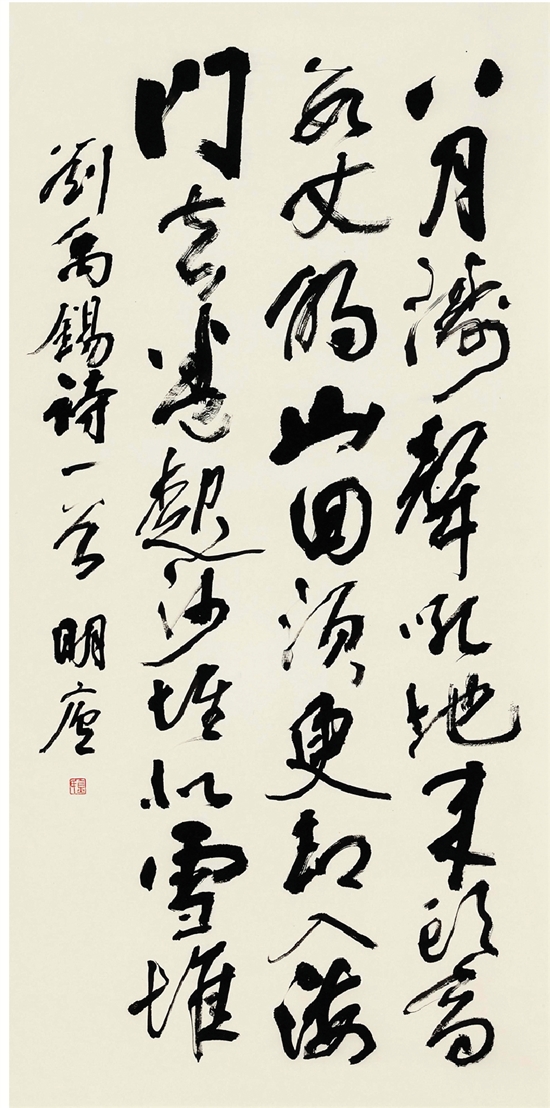 八月濤聲吼地来頭高
數丈觸山回須臾却入海
門去卷起沙堆似雪堆
劉禹錫詩一首 明廬